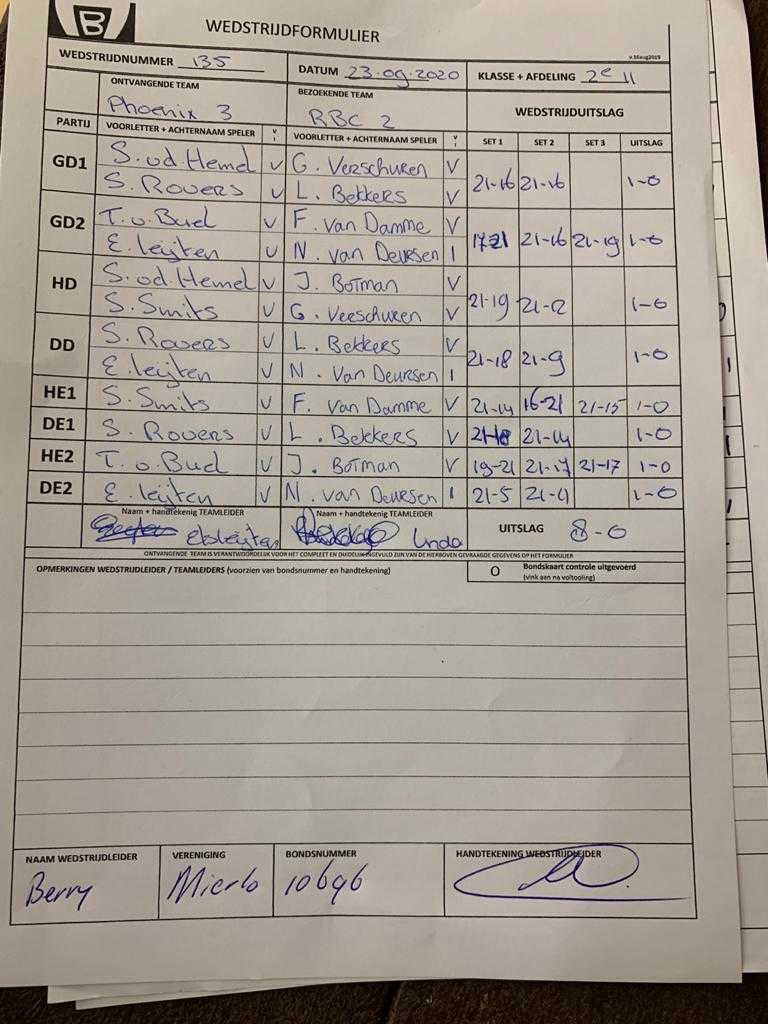 B
WEDSTRIJDFORMULIER
v.blaug2019
WEDSTRIJDNUMMER 135 DATUM 23.09.2020 KLASSE + AFDELING 2e 11
ONTVANGENDE TEAM BEZOEKENDE TEAM WEDSTRIJDUITSLAG
Phoenix 3 RBC 2
PARTIJ VOORLETTER + ACHTERNAAM SPELER V I VOORLETTER + ACHTERNAAM SPELER V I SET 1 SET 2 SET 3 UITSLAG
GD1 S. vd. Hemel V G. Verschuren V 21-16 21-16 1-0
S. Rovers V L. Bekkers V
GD2 T. v. Bud V F. van Damme V 17-21 21-16 21-19 1-0
E. leijten V N. van Deursen I
HD S. vd. Hemel V J. Botman V 21-19 21-12 1-0
S. Smits V G. Verschuren V
DD S. Rovers V L. Bekkers V 21-18 21-9 1-0
E. leijten V N. Van Deursen I
HE1 S. Smits V F. van Damme V 21-14 16-21 21-15 1-0
DE1 S. Rovers V L. Bekkers V 21-18 21-14 1-0
HE2 T. v. Bud V J. Botman V 19-21 21-17 21-17 1-0
DE2 E. leijten V N. van Deursen I 21-5 21-11 1-0
Naam + handtekenig TEAMLEIDER Naam + handtekenig TEAMLEIDER UITSLAG 8-0
Linda
ONTVANGENDE TEAM IS VERANTWOORDELIJK VOOR HET COMPLEET EN DUIDELIJK INGEVULD ZIJN VAN DE HIERBOVEN GEVRAAGDE GEGEVENS OP HET FORMULIER
OPMERKINGEN WEDSTRIJDLEIDER / TEAMLEIDERS (voorzien van bondsnummer en handtekening) O Bondskaart controle uitgevoerd
(Vink aan na voltooling)
NAAM WEDSTRIJDLEIDER VERENIGING BONDSNUMMER HANDTEKENING WEDSTRIJDLEIDER
Berry Mierlo 10696